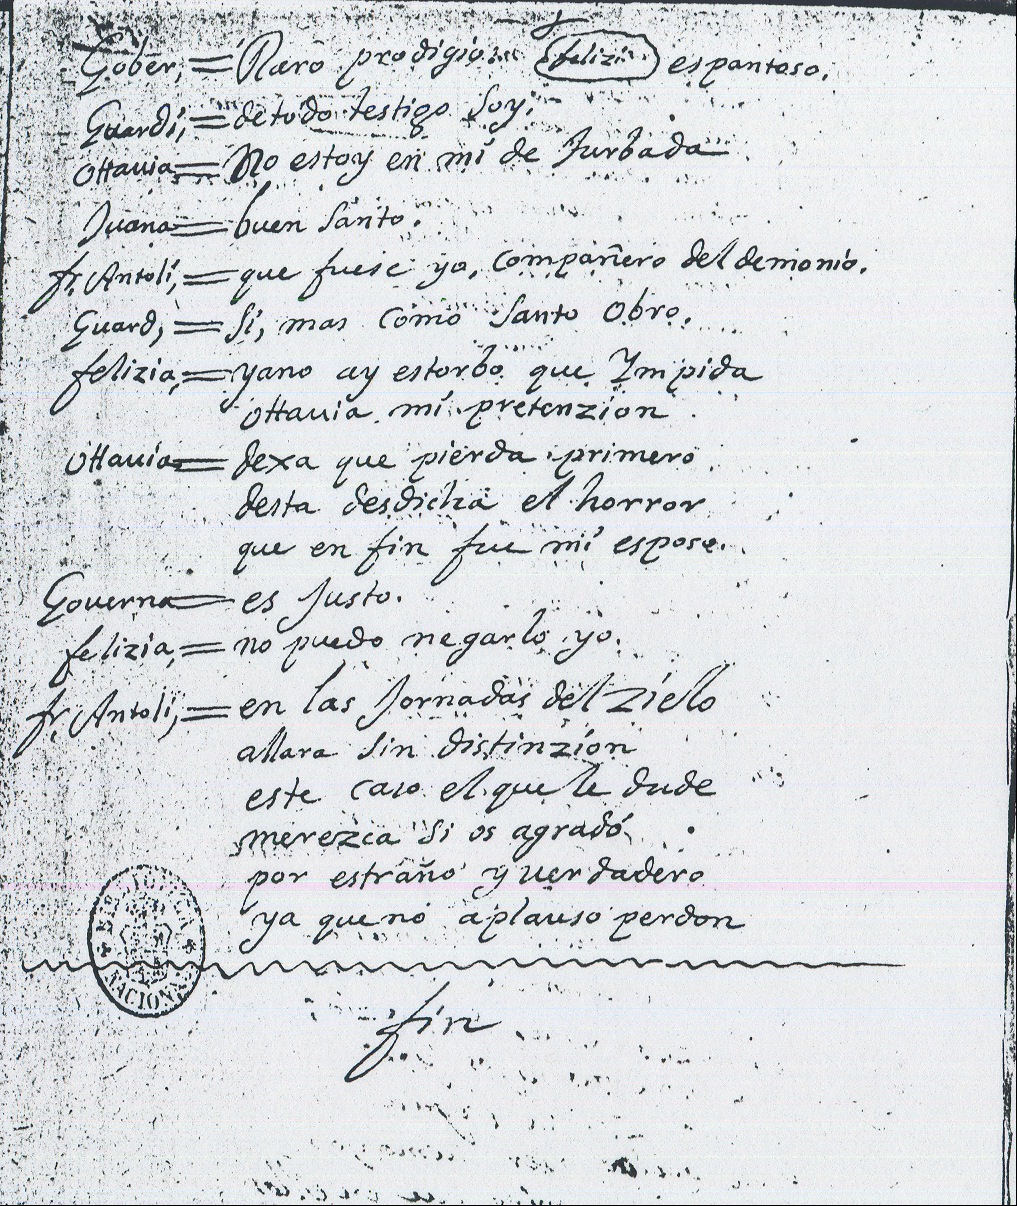 Gober,= Raro prodigio.= felizi= espantoso.
Guardi,= detodo testigo soy.
Ottauia= No estoy en mi de turbada
Juana= buen santo.
fr, Antoli,= que fuese yo, compañero del demonio.
Guard,= si, mas como santo obro.
felizia,= yano ay estorbo que Ympida
ottauia mi pretenzion
ottauia= dexa que pierda primero
desta desdicha el horror
que en fin fue mi esposo.
Gouerna= es Justo.
felizia,= no puedo negarlo yo.
fr, Antoli,= en las Jornadas del Zielo
allara sin distinzion
este caso el que le dude
merezca si os agradó
por estraño y uerdadero
ya que no aplauso perdon
BIBLIOTECA NACIONAL
fin